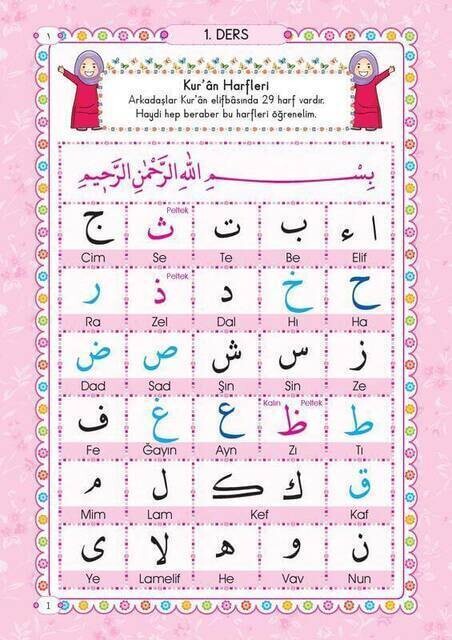 ١
1. DERS
١
Kur'ân Harfleri
Arkadaşlar Kur'ân elifbâsında 29 harf vardır.
Haydi hep beraber bu harfleri öğrenelim.
بِسْمِ اللهِ الرَّحْمٰنِ الرَّحِيمِ
Peltek
ا ء ب ت ث ج
Elif Be Te Se Cim
Peltek
ح خ د ذ ر
Ha Hı Dal Zel Ra
ز س ش ص ض
Ze Sin Şın Sad Dad
Kalın Peltek
ط ظ ع غ ف
Tı Zı Ayn Ğayın Fe
ق ك ل م
Kaf Kef Lam Mim
ن و ه لا ى
Nun Vav He Lamelif Ye
1
1